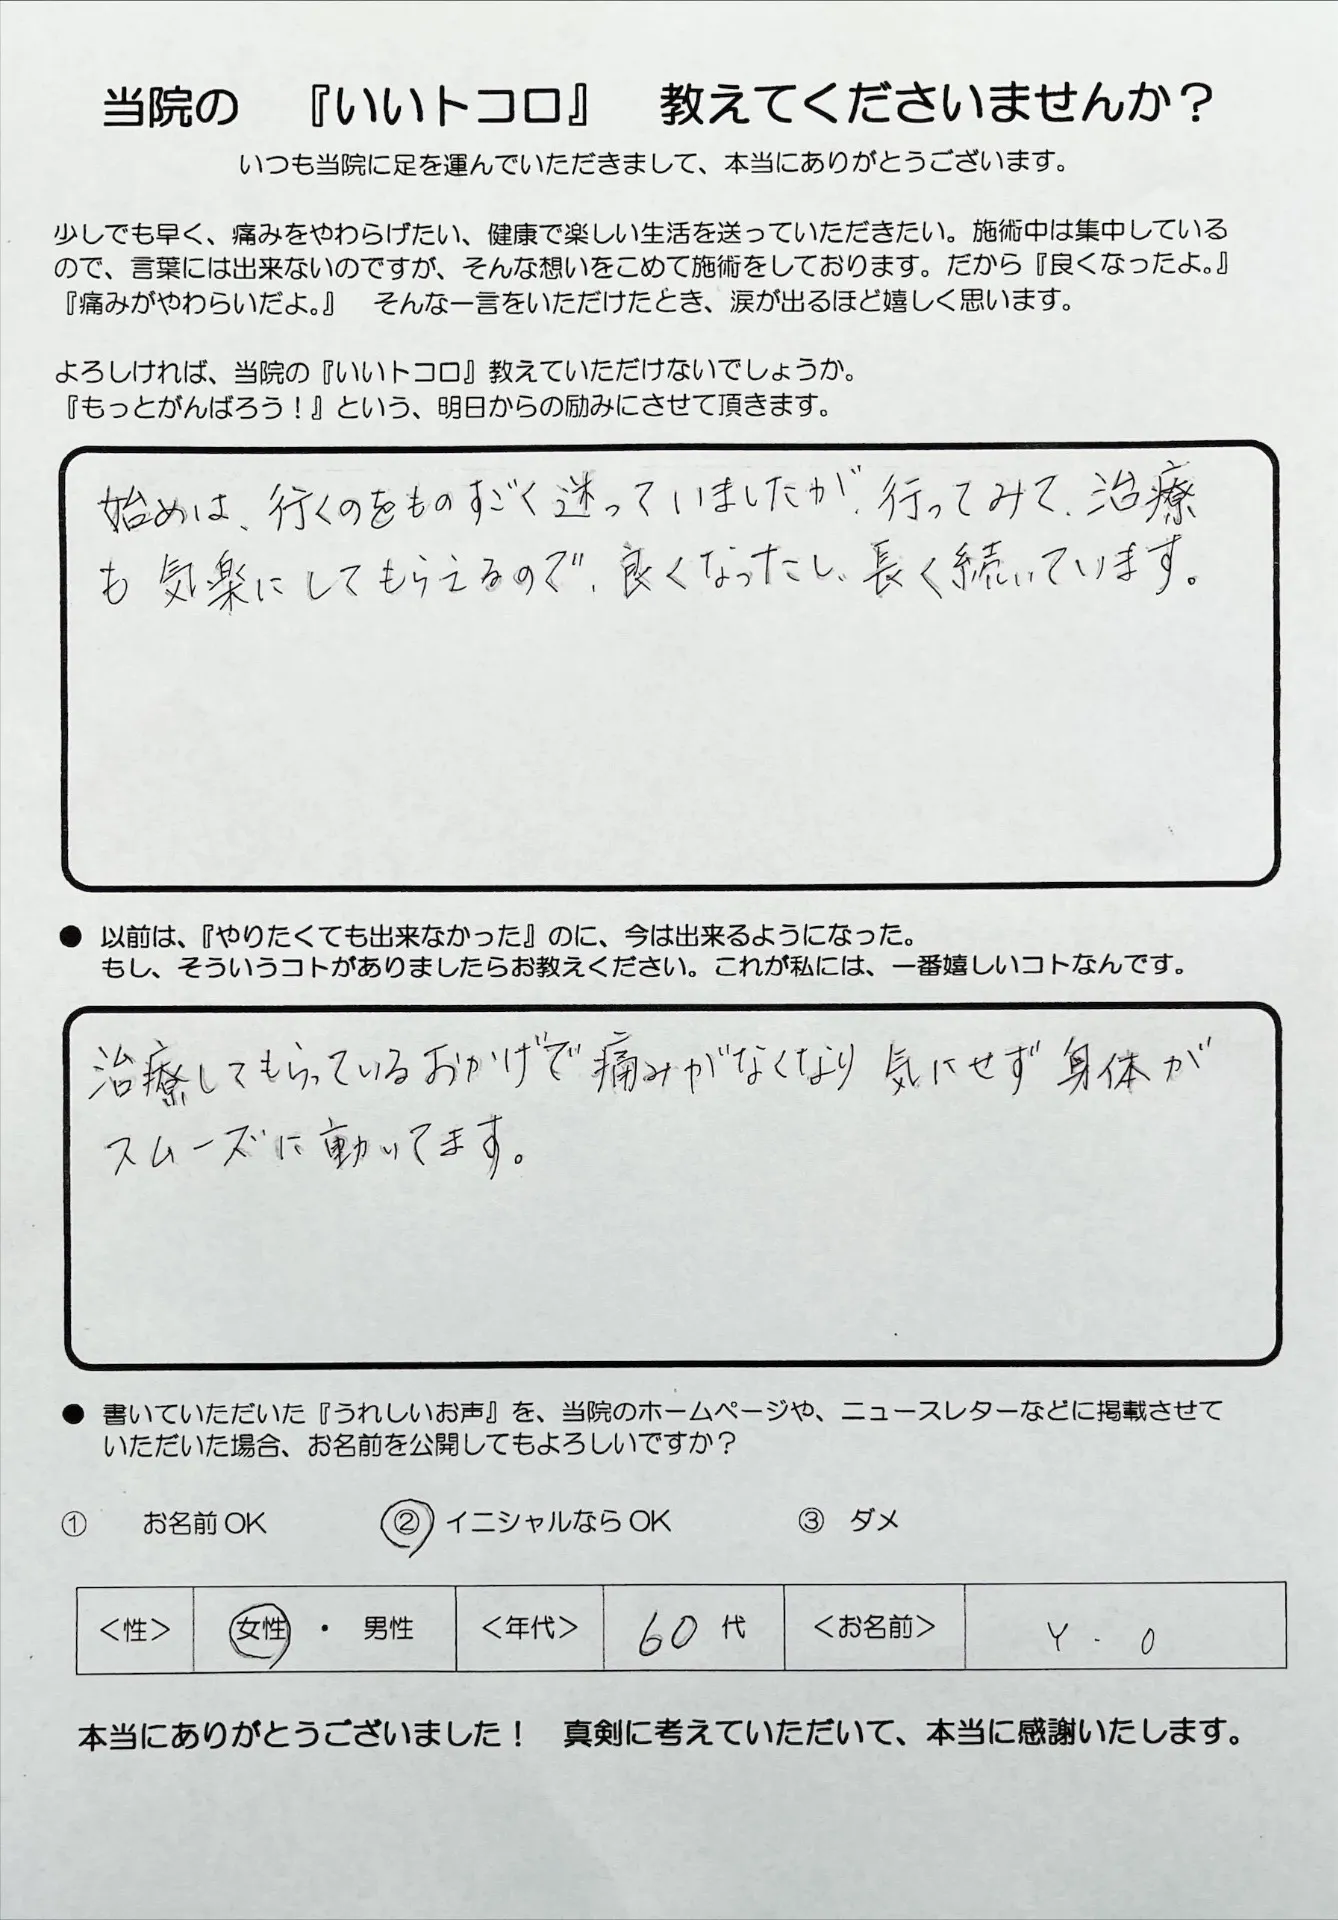 当院の 『いいトコロ』 教えてくださいませんか？
いつも当院に足を運んでいただきまして、本当にありがとうございます。
少しでも早く、痛みをやわらげたい、健康で楽しい生活を送っていただきたい。施術中は集中している
ので、言葉には出来ないのですが、そんな想いをこめて施術をしております。だから『良くなったよ。』
『痛みがやわらいだよ。』 そんな一言をいただけたとき、涙が出るほど嬉しく思います。
よろしければ、当院の『いいトコロ』教えていただけないでしょうか。
『もっとがんばろう！』という、明日からの励みにさせて頂きます。
始めは、行くのをものすごく迷っていましたが、行ってみて、治療
も気楽にしてもらえるので、良くなったし、長く続いています。
● 以前は、『やりたくても出来なかった』のに、今は出来るようになった。
もし、そういうコトがありましたらお教えください。これが私には、一番嬉しいコトなんです。
治療してもらっているおかげで痛みがなくなり 気にせず 身体が
スムーズに動いてます。
● 書いていただいた『うれしいお声』を、当院のホームページや、ニュースレターなどに掲載させて
いただいた場合、お名前を公開してもよろしいですか？
① お名前 OK ② イニシャルなら OK ③ ダメ
＜性＞ 女性 ・ 男性 ＜年代＞ 60 代 ＜お名前＞ Y . O
本当にありがとうございました！ 真剣に考えていただいて、本当に感謝いたします。